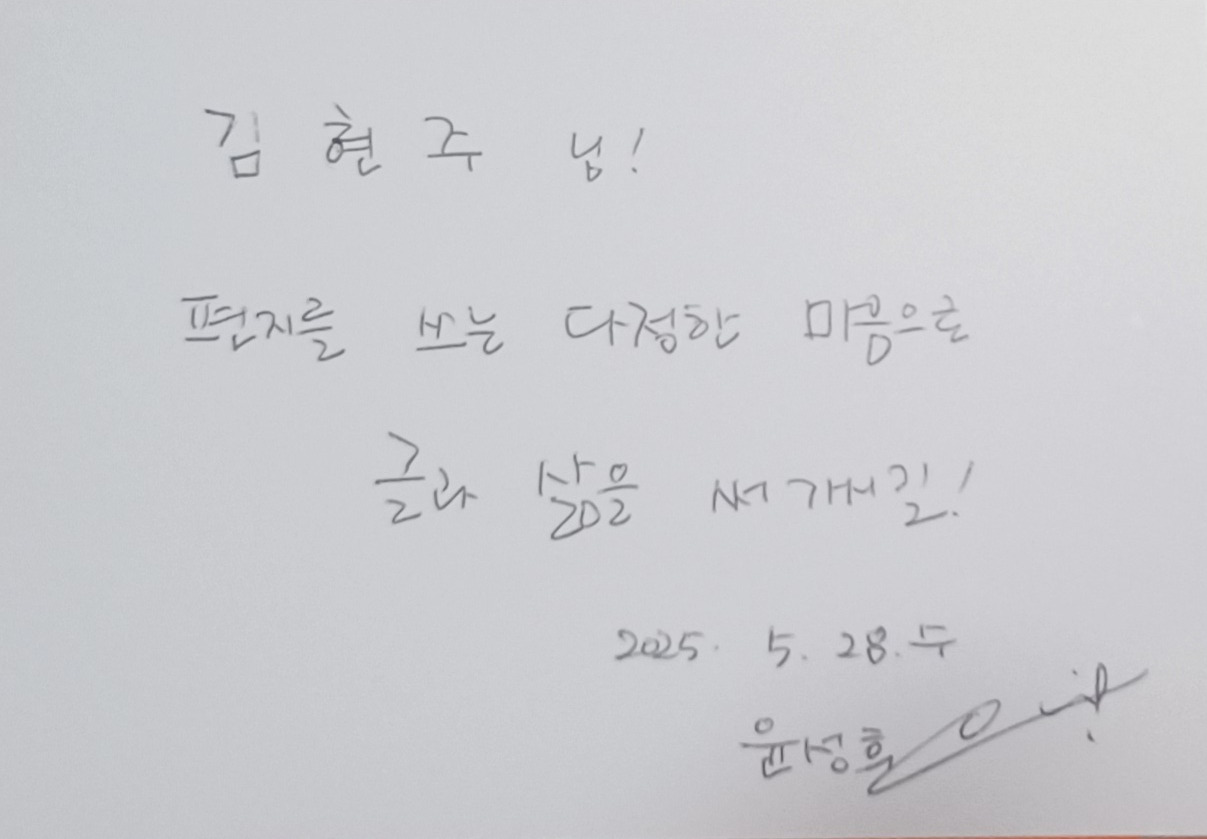 김현주 님!
편지를 쓰는 다정한 마음으로
글과 삶을 써 가시길!
2025. 5. 28.
윤성희